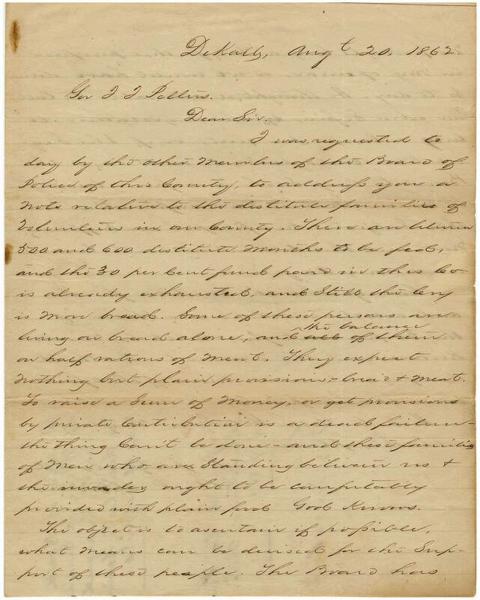 DeKalb, Augt 20, 1862
Gov J J Pettus.
Dear Sir.
I was requested to
day by the other Members of the Board of
Police of this County, to address you a
note relative to the distitute families of
Volunteers in our County. There are between
500 and 600 distitute Mouths to be fed,
and the 30 per Cent fund paid in this Co
is already exhausted, and Still the Cry
is More bread. Some of these persons are
living on bread alone, and all of them
the balance
on half rations of Meat. They expect
Nothing but plain provisions - bread & Meat.
To raise a Sum of Money, or get provisions
by private Contribution is a dead failure
the thing Can't be done - and these families
of Men who are Standing between us &
the invader ought to be competably
provided with plain food God Knows.
The object is to ascertain if possible,
what Means can be devised for the Sup-
port of these people. The Board has